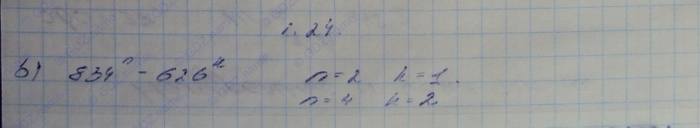 1.24.
b) 834ⁿ - 626ᵏ n=2 k=1.
n=4 k=2